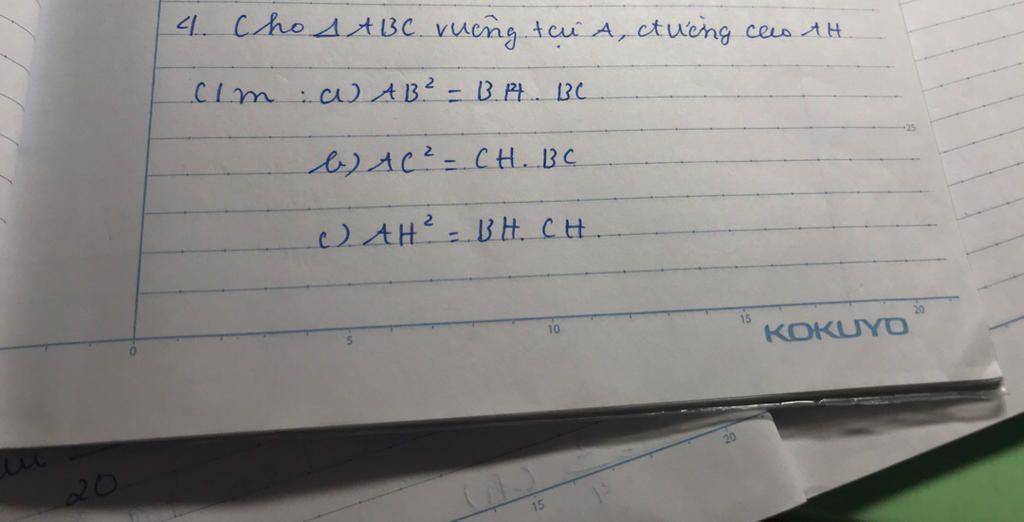 4. Cho Δ ABC vuông tại A, đường cao AH
C/m : a) AB² = BH. BC
b) AC² = CH. BC
c) AH² = BH. CH.
25
0 5 10 15 20
KOKUYO
20
20
15